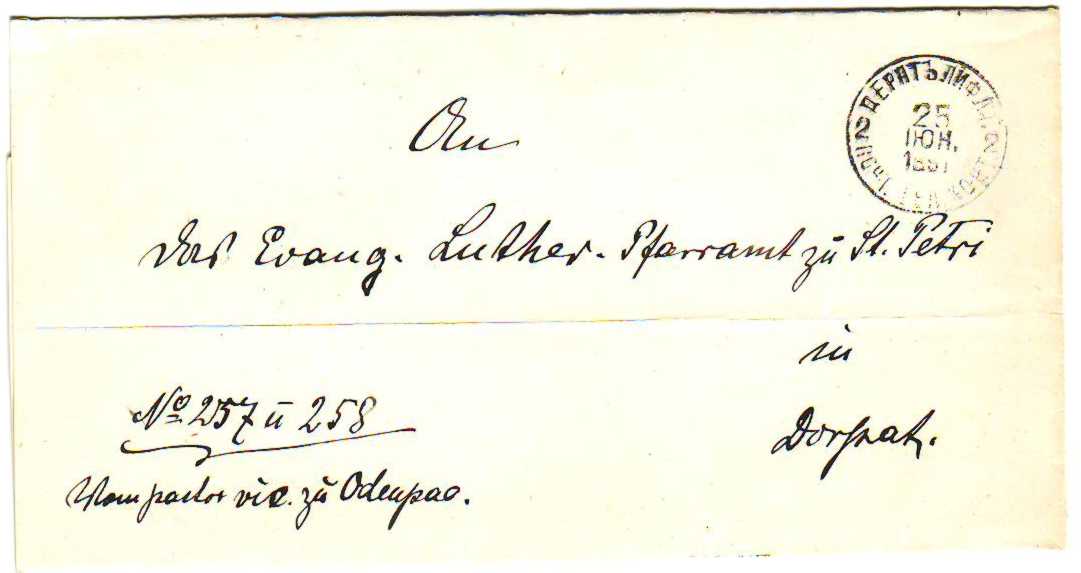 An
das Evang. Luther. Pfarramt zu St. Petri
in
Dorpat.
No 257 u 258
Vom pastor vic. zu Odenpae.
ДЕРПТЪ ЛИФЛ.
25
ІЮН.
2
2